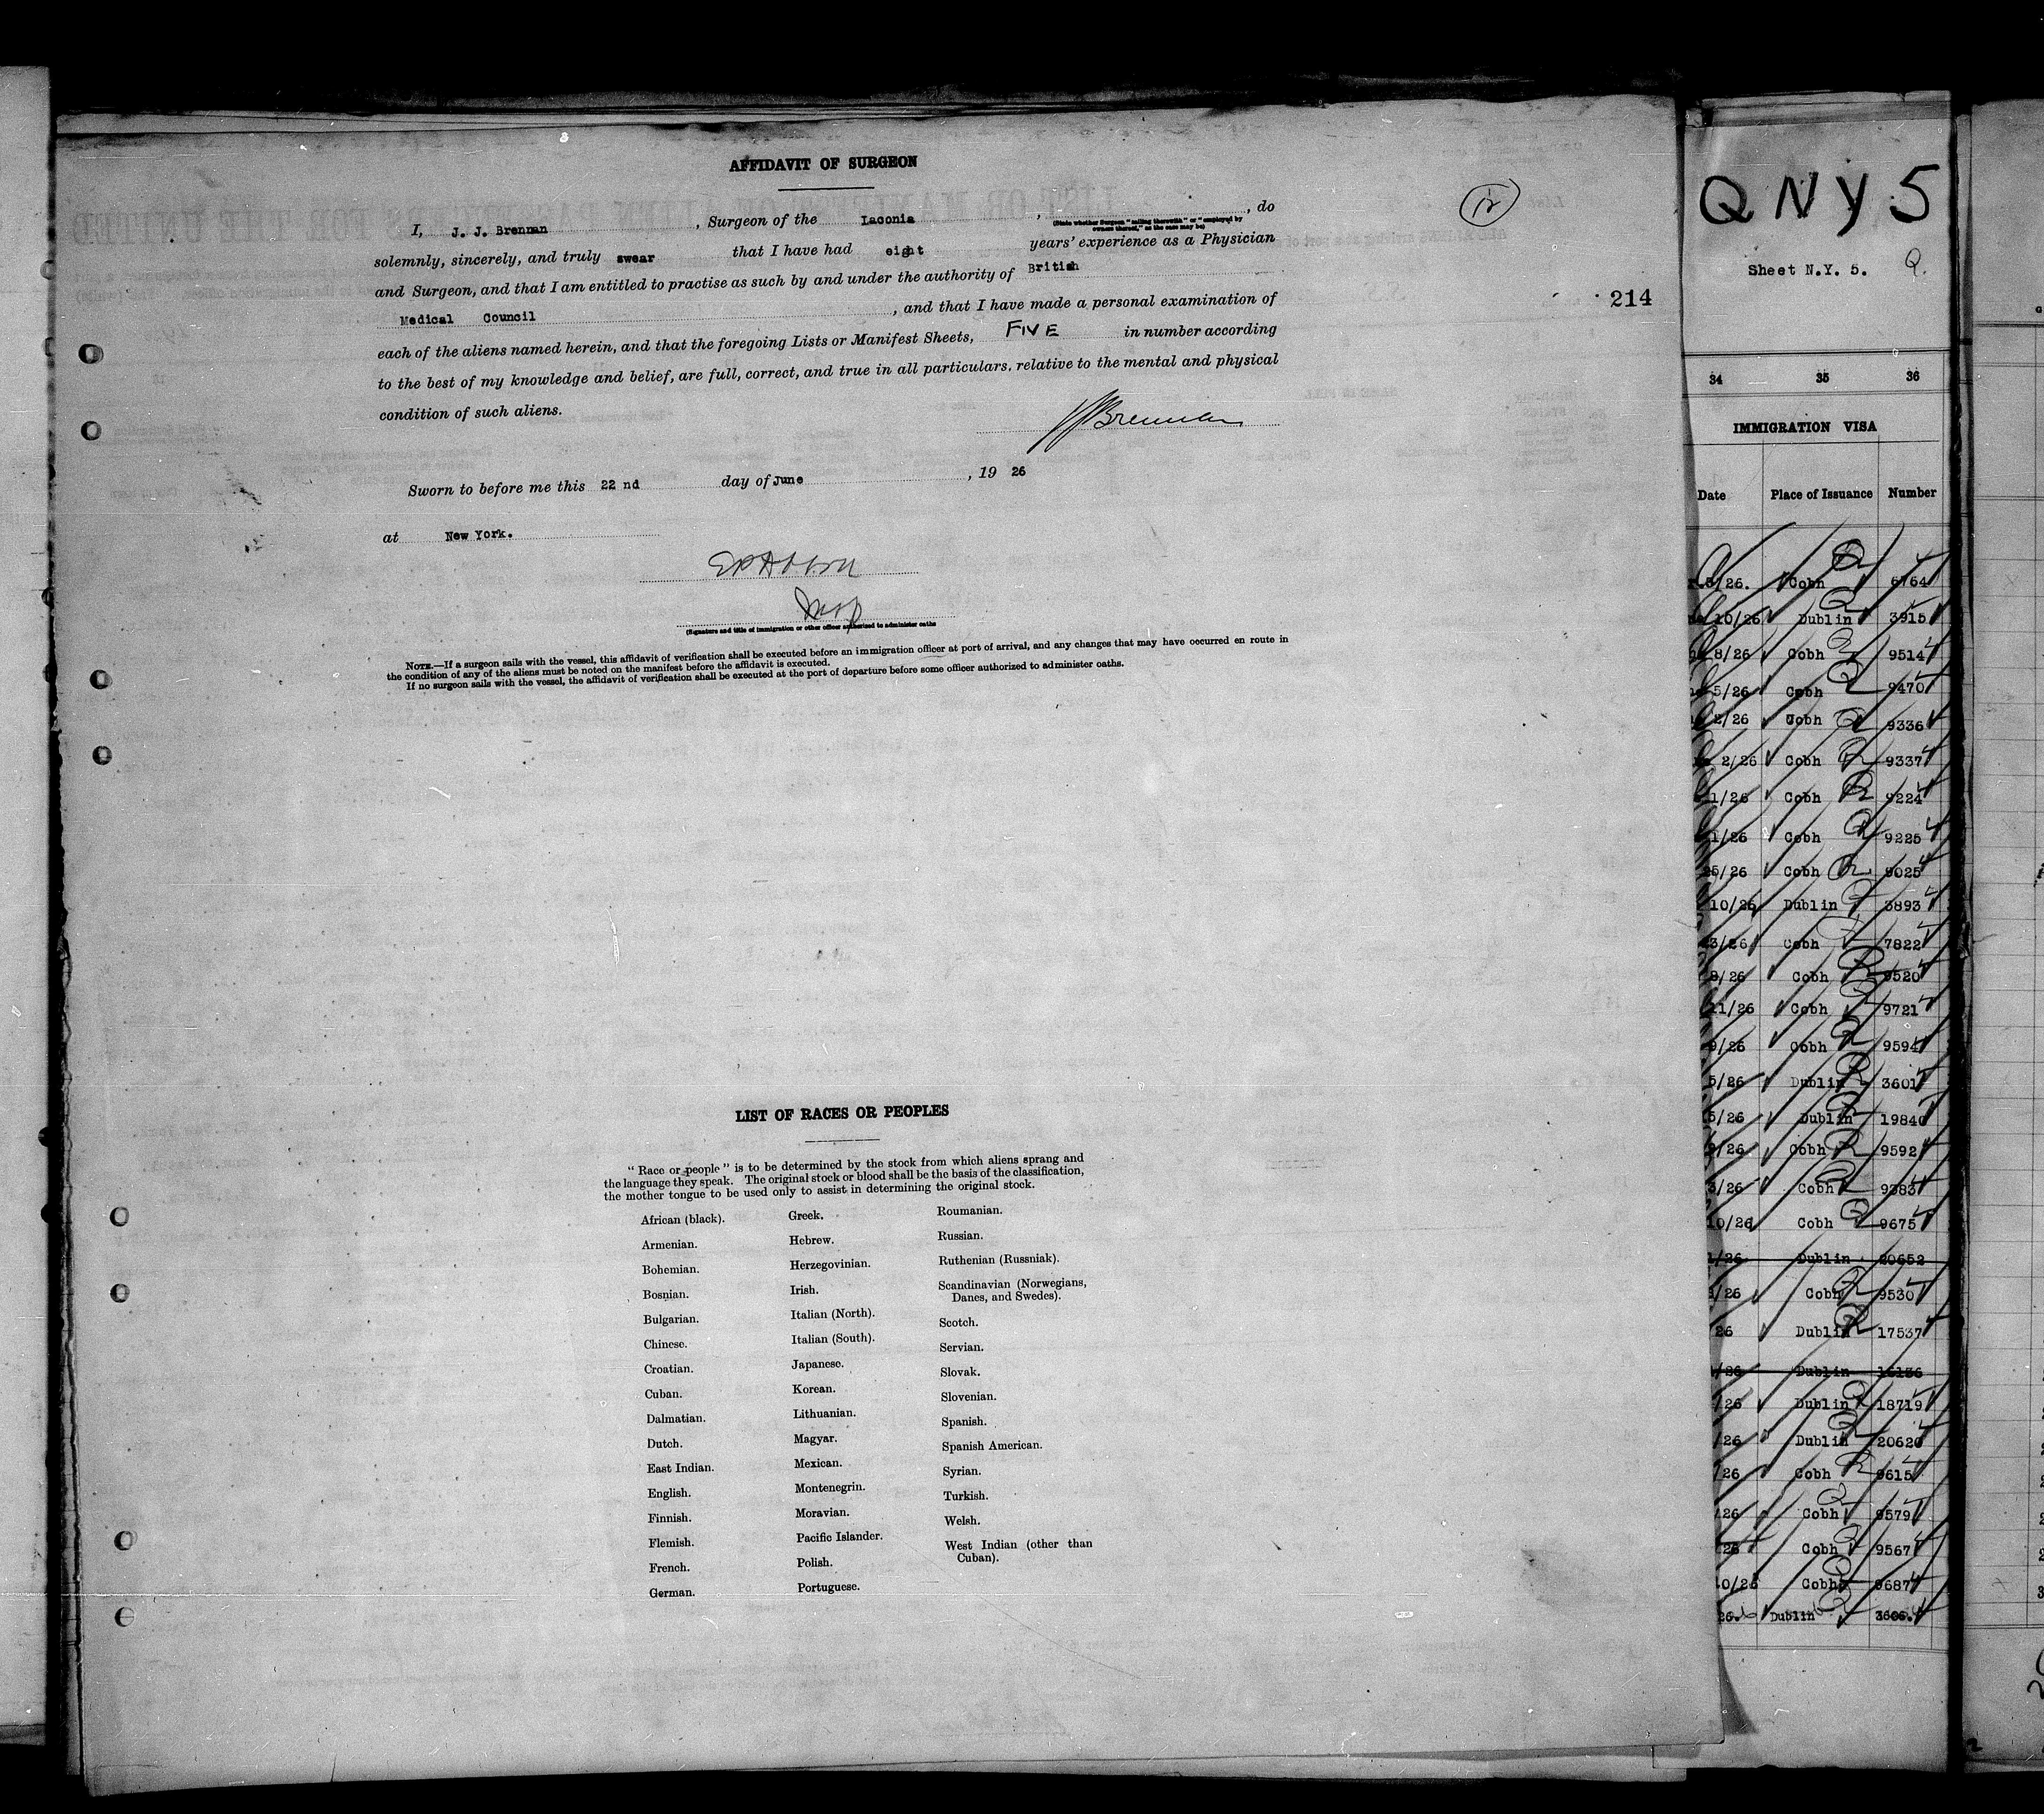 AFFIDAVIT OF SURGEON
12
I, J. J. Brennan, Surgeon of the Laconia, , do
(State whether Surgeon "sailing therewith" or "employed by
owners thereof," as the case may be)
solemnly, sincerely, and truly swear that I have had eight years' experience as a Physician
and Surgeon, and that I am entitled to practise as such by and under the authority of British
Medical Council, and that I have made a personal examination of
214
each of the aliens named herein, and that the foregoing Lists or Manifest Sheets, FIVE in number according
to the best of my knowledge and belief, are full, correct, and true in all particulars, relative to the mental and physical
condition of such aliens.
JJBrennan
Sworn to before me this 22 nd day of June, 19 26
at New York.
(Signature and title of immigration or other officer authorized to administer oaths
NOTE.—If a surgeon sails with the vessel, this affidavit of verification shall be executed before an immigration officer at port of arrival, and any changes that may have occurred en route in
the condition of any of the aliens must be noted on the manifest before the affidavit is executed.
If no surgeon sails with the vessel, the affidavit of verification shall be executed at the port of departure before some officer authorized to administer oaths.
LIST OF RACES OR PEOPLES
"Race or people" is to be determined by the stock from which aliens sprang and
the language they speak. The original stock or blood shall be the basis of the classification,
the mother tongue to be used only to assist in determining the original stock.
African (black).
Armenian.
Bohemian.
Bosnian.
Bulgarian.
Chinese.
Croatian.
Cuban.
Dalmatian.
Dutch.
East Indian.
English.
Finnish.
Flemish.
French.
German.
Greek.
Hebrew.
Herzegovinian.
Irish.
Italian (North).
Italian (South).
Japanese.
Korean.
Lithuanian.
Magyar.
Mexican.
Montenegrin.
Moravian.
Pacific Islander.
Polish.
Portuguese.
Roumanian.
Russian.
Ruthenian (Russniak).
Scandinavian (Norwegians,
Danes, and Swedes).
Scotch.
Servian.
Slovak.
Slovenian.
Spanish.
Spanish American.
Syrian.
Turkish.
Welsh.
West Indian (other than
Cuban).
Q N Y 5
Sheet N.Y. 5. Q.
34 35 36
IMMIGRATION VISA
Date Place of Issuance Number
5/26. Cobh 6764
10/26 Dublin 3915
8/26 Cobh 9514
5/26 Cobh 9470
2/26 Cobh 9336
2/26 Cobh 9337
1/26 Cobh 9224
1/26 Cobh 9225
25/26 Cobh 9025
10/26 Dublin 3893
3/26 Cobh 7822
8/26 Cobh 9520
11/26 Cobh 9721
9/26 Cobh 9594
5/26 Dublin 3601
5/26 Dublin 19840
9/26 Cobh 9592
3/26 Cobh 9383
10/26 Cobh 9675
1/26 Dublin 20652
/26 Cobh 9530
26 Dublin 17537
/26 Dublin 16136
/26 Dublin 18719
/26 Dublin 20620
/26 Cobh 9615
/26 Cobh 9579
26 Cobh 9567
10/26 Cobh 9687
26. Dublin 3606.